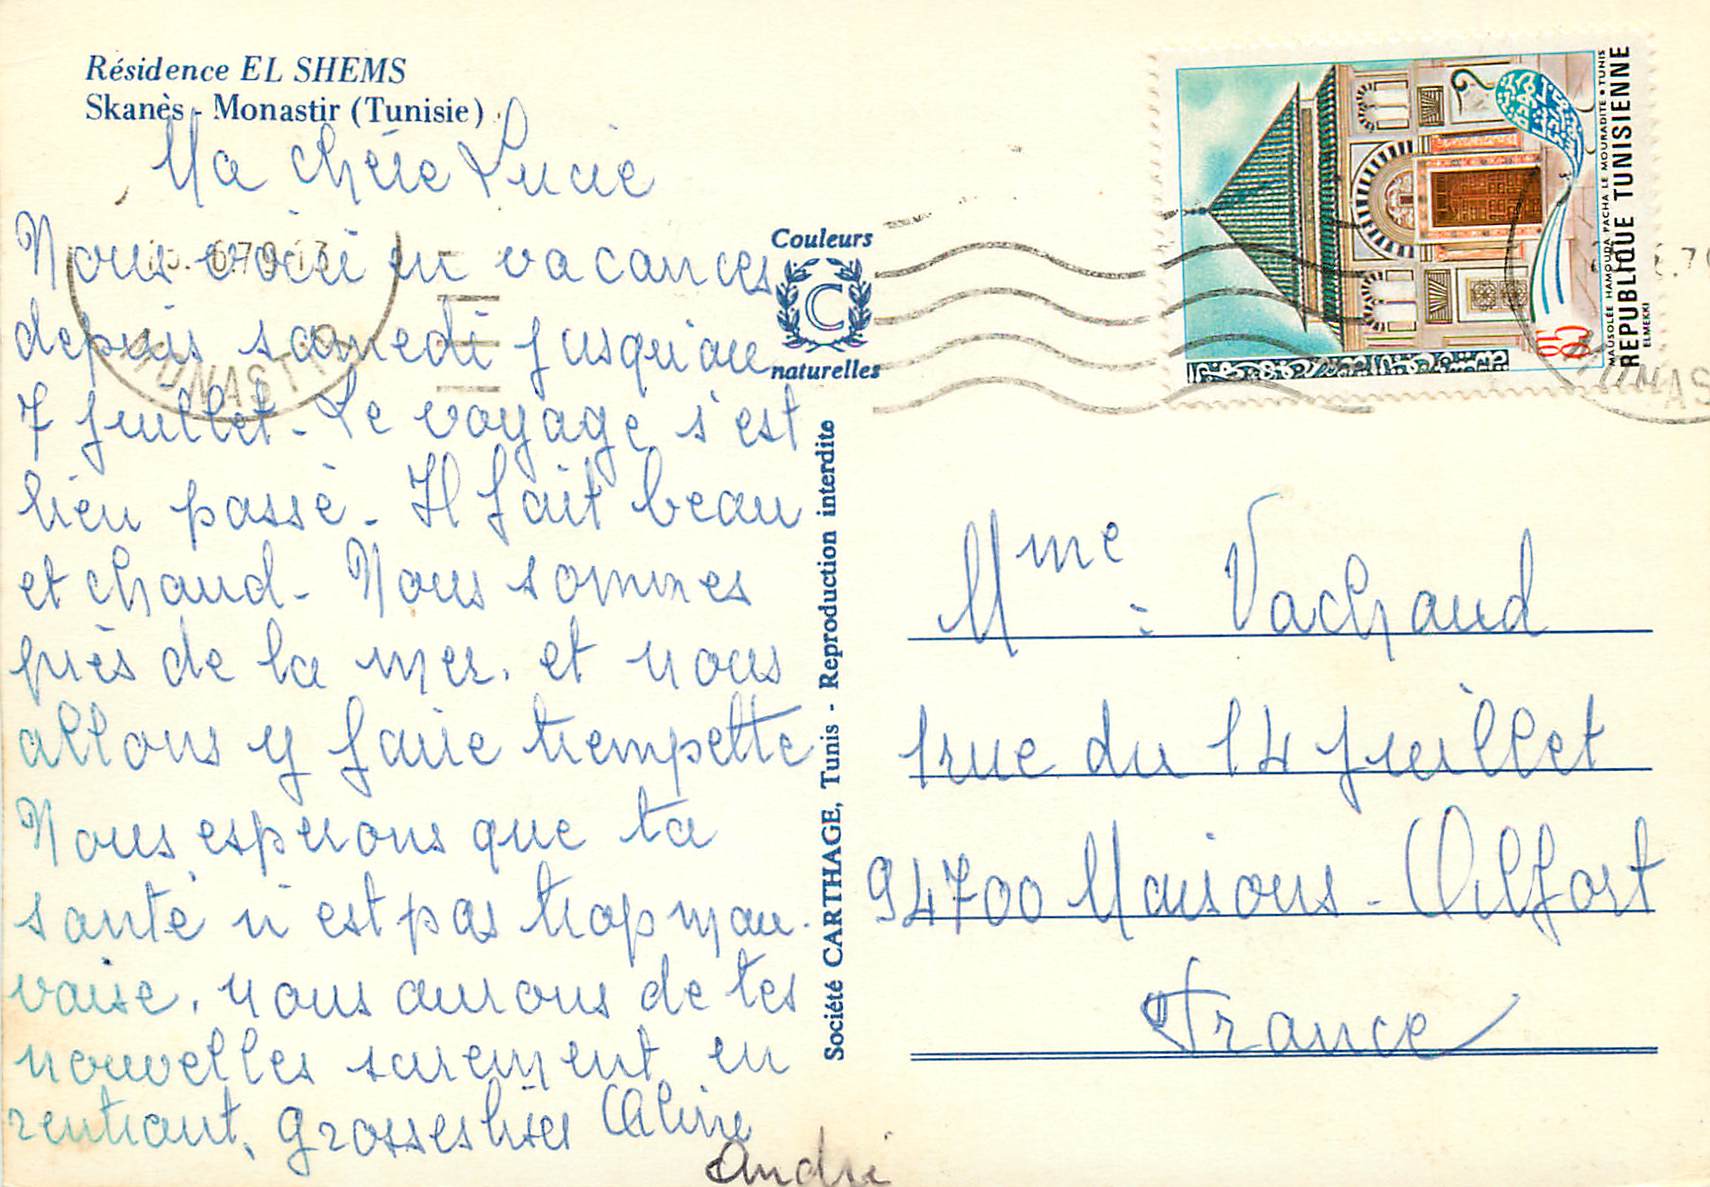 Résidence EL SHEMS
Skanès - Monastir (Tunisie)
Ma chère Lucie
Nous voici en vacances
depuis samedi jusqu'au
7 juillet. Le voyage s'est
bien passé. Il fait beau
et chaud. Nous sommes
près de la mer. et nous
allons y faire trempette
Nous esperons que ta
santé n'est pas trop mau-
vaise. nous aurons de tes
nouvelles surement en
rentrant. grosses bises Aline
André
Couleurs
C
naturelles
Société CARTHAGE, Tunis - Reproduction interdite
MAUSOLÉE HAMOUDA PACHA LE MOURADITE • TUNIS
REPUBLIQUE TUNISIENNE
ELMEKKI
MONASTIR
Mme Vachaud
1 rue du 14 juillet
94700 Maisons-Alfort
France